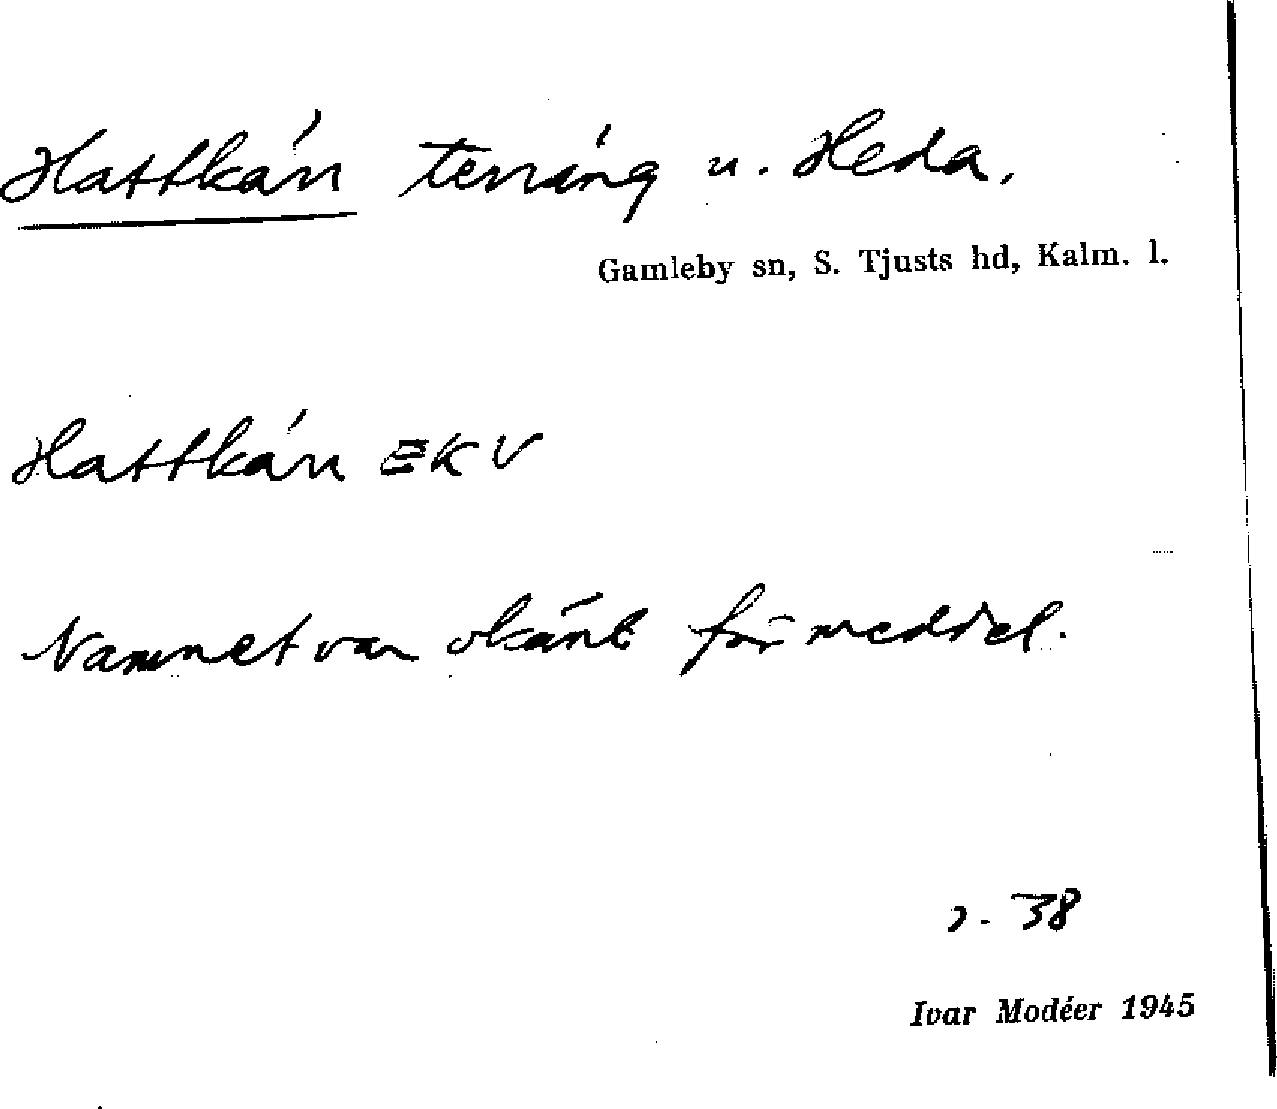 Hattkärr terräng u. Heda.
Gamleby sn, S. Tjusts hd, Kalm. l.
Hattkärr EKV
Namnet var okänt för meddel.
2. 38
Ivar Modéer 1945